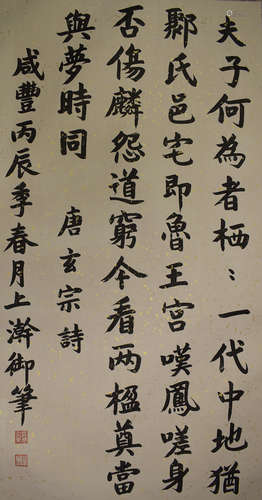 夫子何為者栖〻一代中地猶
鄹氏邑宅即魯王宮嘆鳳嗟身
否傷麟怨道窮今看两楹奠當
與夢時同 唐玄宗詩
咸豐丙辰季春月上澣御筆